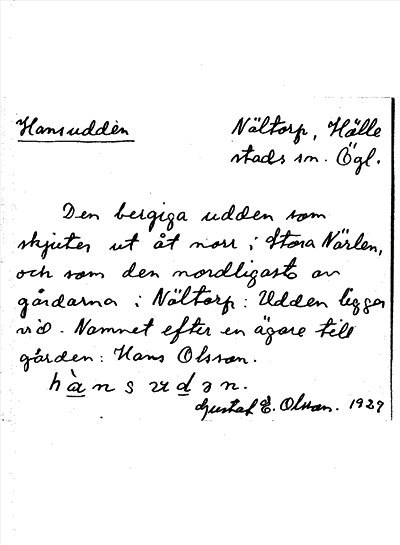 Hansudden
Nältorp, Hälle
stads sn. Ögl.
Den bergiga udden som
skjuter ut åt norr i Stora Närlen,
och som den nordligaste av
gårdarna i Nältorp: Udden ligger
vid. Namnet efter en ägare till
gården: Hans Olsson.
hànsudən.
Gustaf E. Olsson. 1929